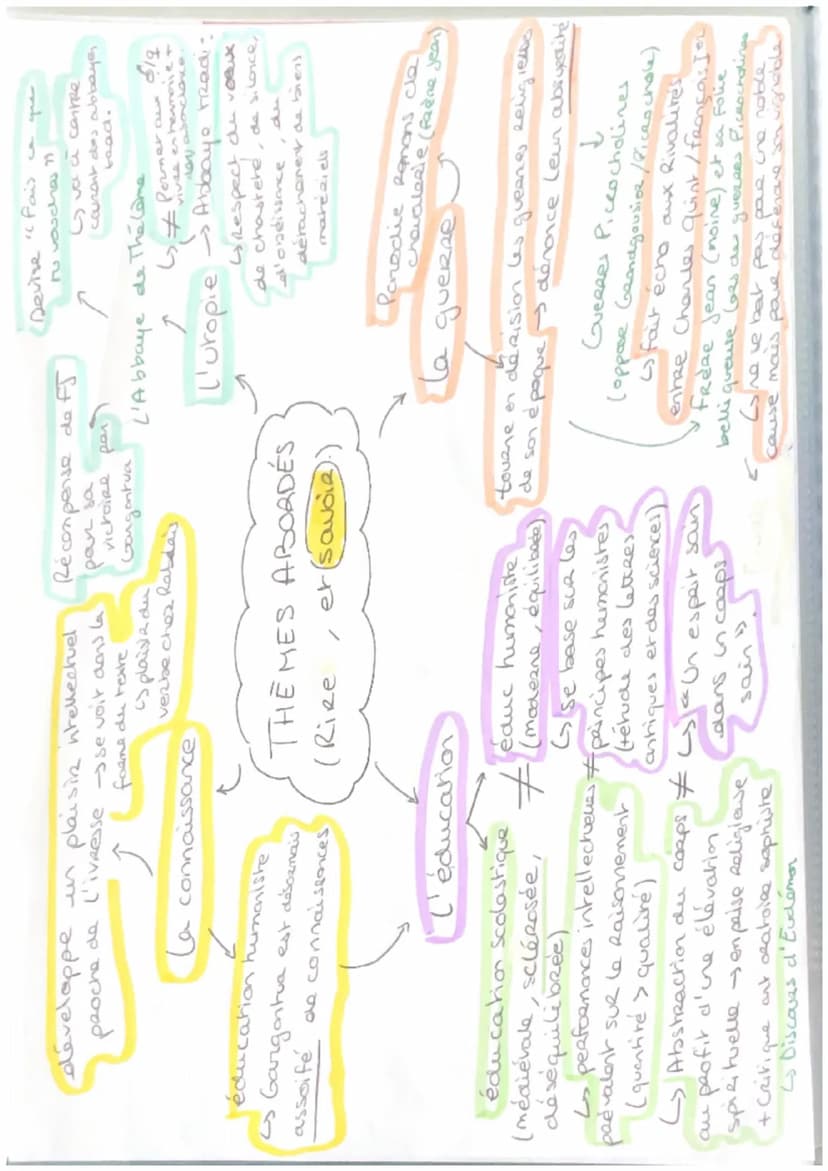 THÈMES ABORDÉS
(Rire, et savoir)
La connaissance
développe un plaisir intellectuel
proche de l'ivresse → se voit dans la
forme du texte
↳ plaisir du
verbe chez Rabelais
éducation humaniste
↳ Gargantua est désormais
assoifé de connaissances
L'utopie
L'Abbaye de Thélème
Récompense de FJ
par sa
victoire par
Gargantua
Devise "Fais ce que
tu voudras"
↳ va à contre
courant des abbayes
trad.
↳ ≠ Permet aux ♂/♀
vivre en harmonie +
abondance
→ Abbaye tradi :
↳ respect du vœux
de chasteté, de silence,
d'obéissance, du
détachement de biens
matériels
L'éducation
éducation scolastique
(médiévale, sclérosée,
déséquilibrée)
↳ performances intellectuelles
prévalent sur le raisonnement
(quantité > qualité)
↳ Abstraction du corps
au profit d'une élévation
spirituelle → emprise religieuse
+ critique art oratoire sophiste
↳ Discours d'Eudémon
≠
éduc humaniste
(moderne, équilibrée)
↳ se base sur les
≠ principes humanistes
(+ étude des lettres
artiques et des sciences)
≠ ↳ "Un esprit sain
dans un corps
sain".
La guerre
Parodie romans de
chevalerie (frère Jean)
tourne en dérision les guerres religieuses
de son époque → dénonce leur absurdité
Guerres Picrocholines
(oppose Grandgousier/Picrochole)
↳ fait écho aux Rivalités
entre Charles Quint/François Ier
Frère Jean (moine) et sa folie
belliqueuse lors des guerres Picrocholines
↳ ne se bat pas par une noble
cause mais pour défendre son vignoble